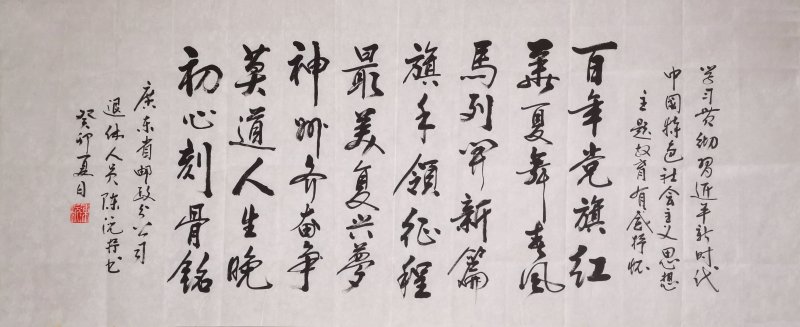 学习贯彻习近平新时代
中国特色社会主义思想
主题教育有感抒怀
百年党旗红
華夏舞春風
馬列開新篇
旗手領征程
最美复兴夢
神州齐奋争
莫道人生晚
初心刻骨銘
廣东省邮政分公司
退休人员陈沅存书
癸卯夏日